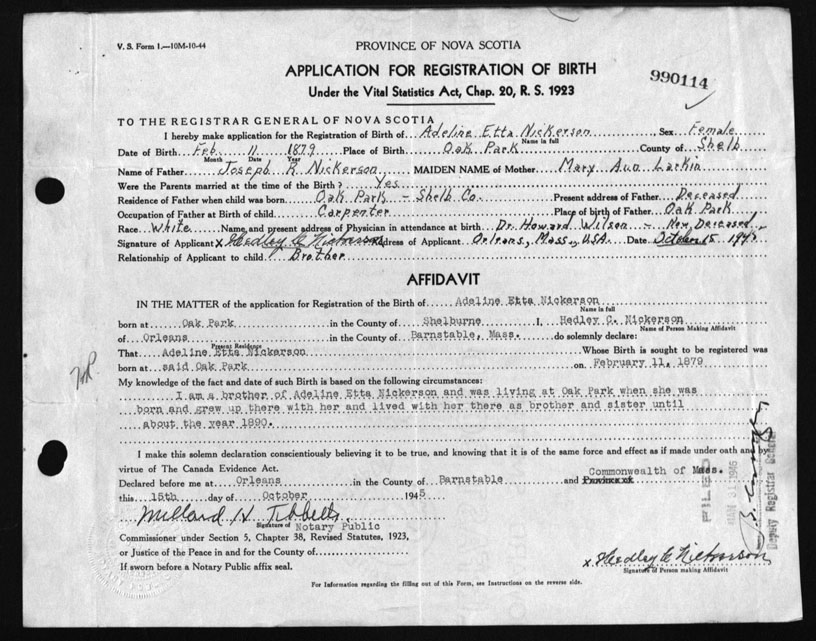 V. S. Form 1.—10M-10-44
PROVINCE OF NOVA SCOTIA
APPLICATION FOR REGISTRATION OF BIRTH
990114
Under the Vital Statistics Act, Chap. 20, R. S. 1923
TO THE REGISTRAR GENERAL OF NOVA SCOTIA
I hereby make application for the Registration of Birth of Adeline Etta Nickerson, Sex Female
Name in full
Date of Birth Feb 11 1879 Place of Birth Oak Park County of Shelb
Month Date Year
Name of Father Joseph R Nickerson MAIDEN NAME of Mother Mary Ann Larkin
Were the Parents married at the time of the Birth? Yes
Residence of Father when child was born Oak Park - Shelb Co. Present address of Father Deceased
Occupation of Father at Birth of child Carpenter Place of birth of Father Oak Park
Race White Name and present address of Physician in attendance at birth Dr. Howard Wilson - Now Deceased
Signature of Applicant x Hedley C Nickerson Address of Applicant Orleans, Mass., USA. Date October 15 1945
Relationship of Applicant to child Brother
AFFIDAVIT
IN THE MATTER of the application for Registration of the Birth of Adeline Etta Nickerson
Name in full
born at Oak Park in the County of Shelburne I, Hedley C. Nickerson
Name of Person Making Affidavit
of Orleans in the County of Barnstable, Mass. do solemnly declare:
Present Residence
That Adeline Etta Nickerson Whose Birth is sought to be registered was
born at said Oak Park on February 11, 1879
My knowledge of the fact and date of such Birth is based on the following circumstances:
I am a brother of Adeline Etta Nickerson and was living at Oak Park when she was
born and grew up there with her and lived with her there as brother and sister until
about the year 1890.
I make this solemn declaration conscientiously believing it to be true, and knowing that it is of the same force and effect as if made under oath and by
virtue of The Canada Evidence Act.
Commonwealth of Mass.
Declared before me at Orleans in the County of Barnstable and Province of
this 15th day of October 1945
Millard H Tibbetts
Signature of Notary Public
Commissioner under Section 5, Chapter 38, Revised Statutes, 1923,
or Justice of the Peace in and for the County of
x Hedley C Nickerson
Signature of Person making Affidavit
If sworn before a Notary Public affix seal.
For Information regarding the filling out of this Form, see Instructions on the reverse side.
FILED
31 1946
Deputy Registrar General